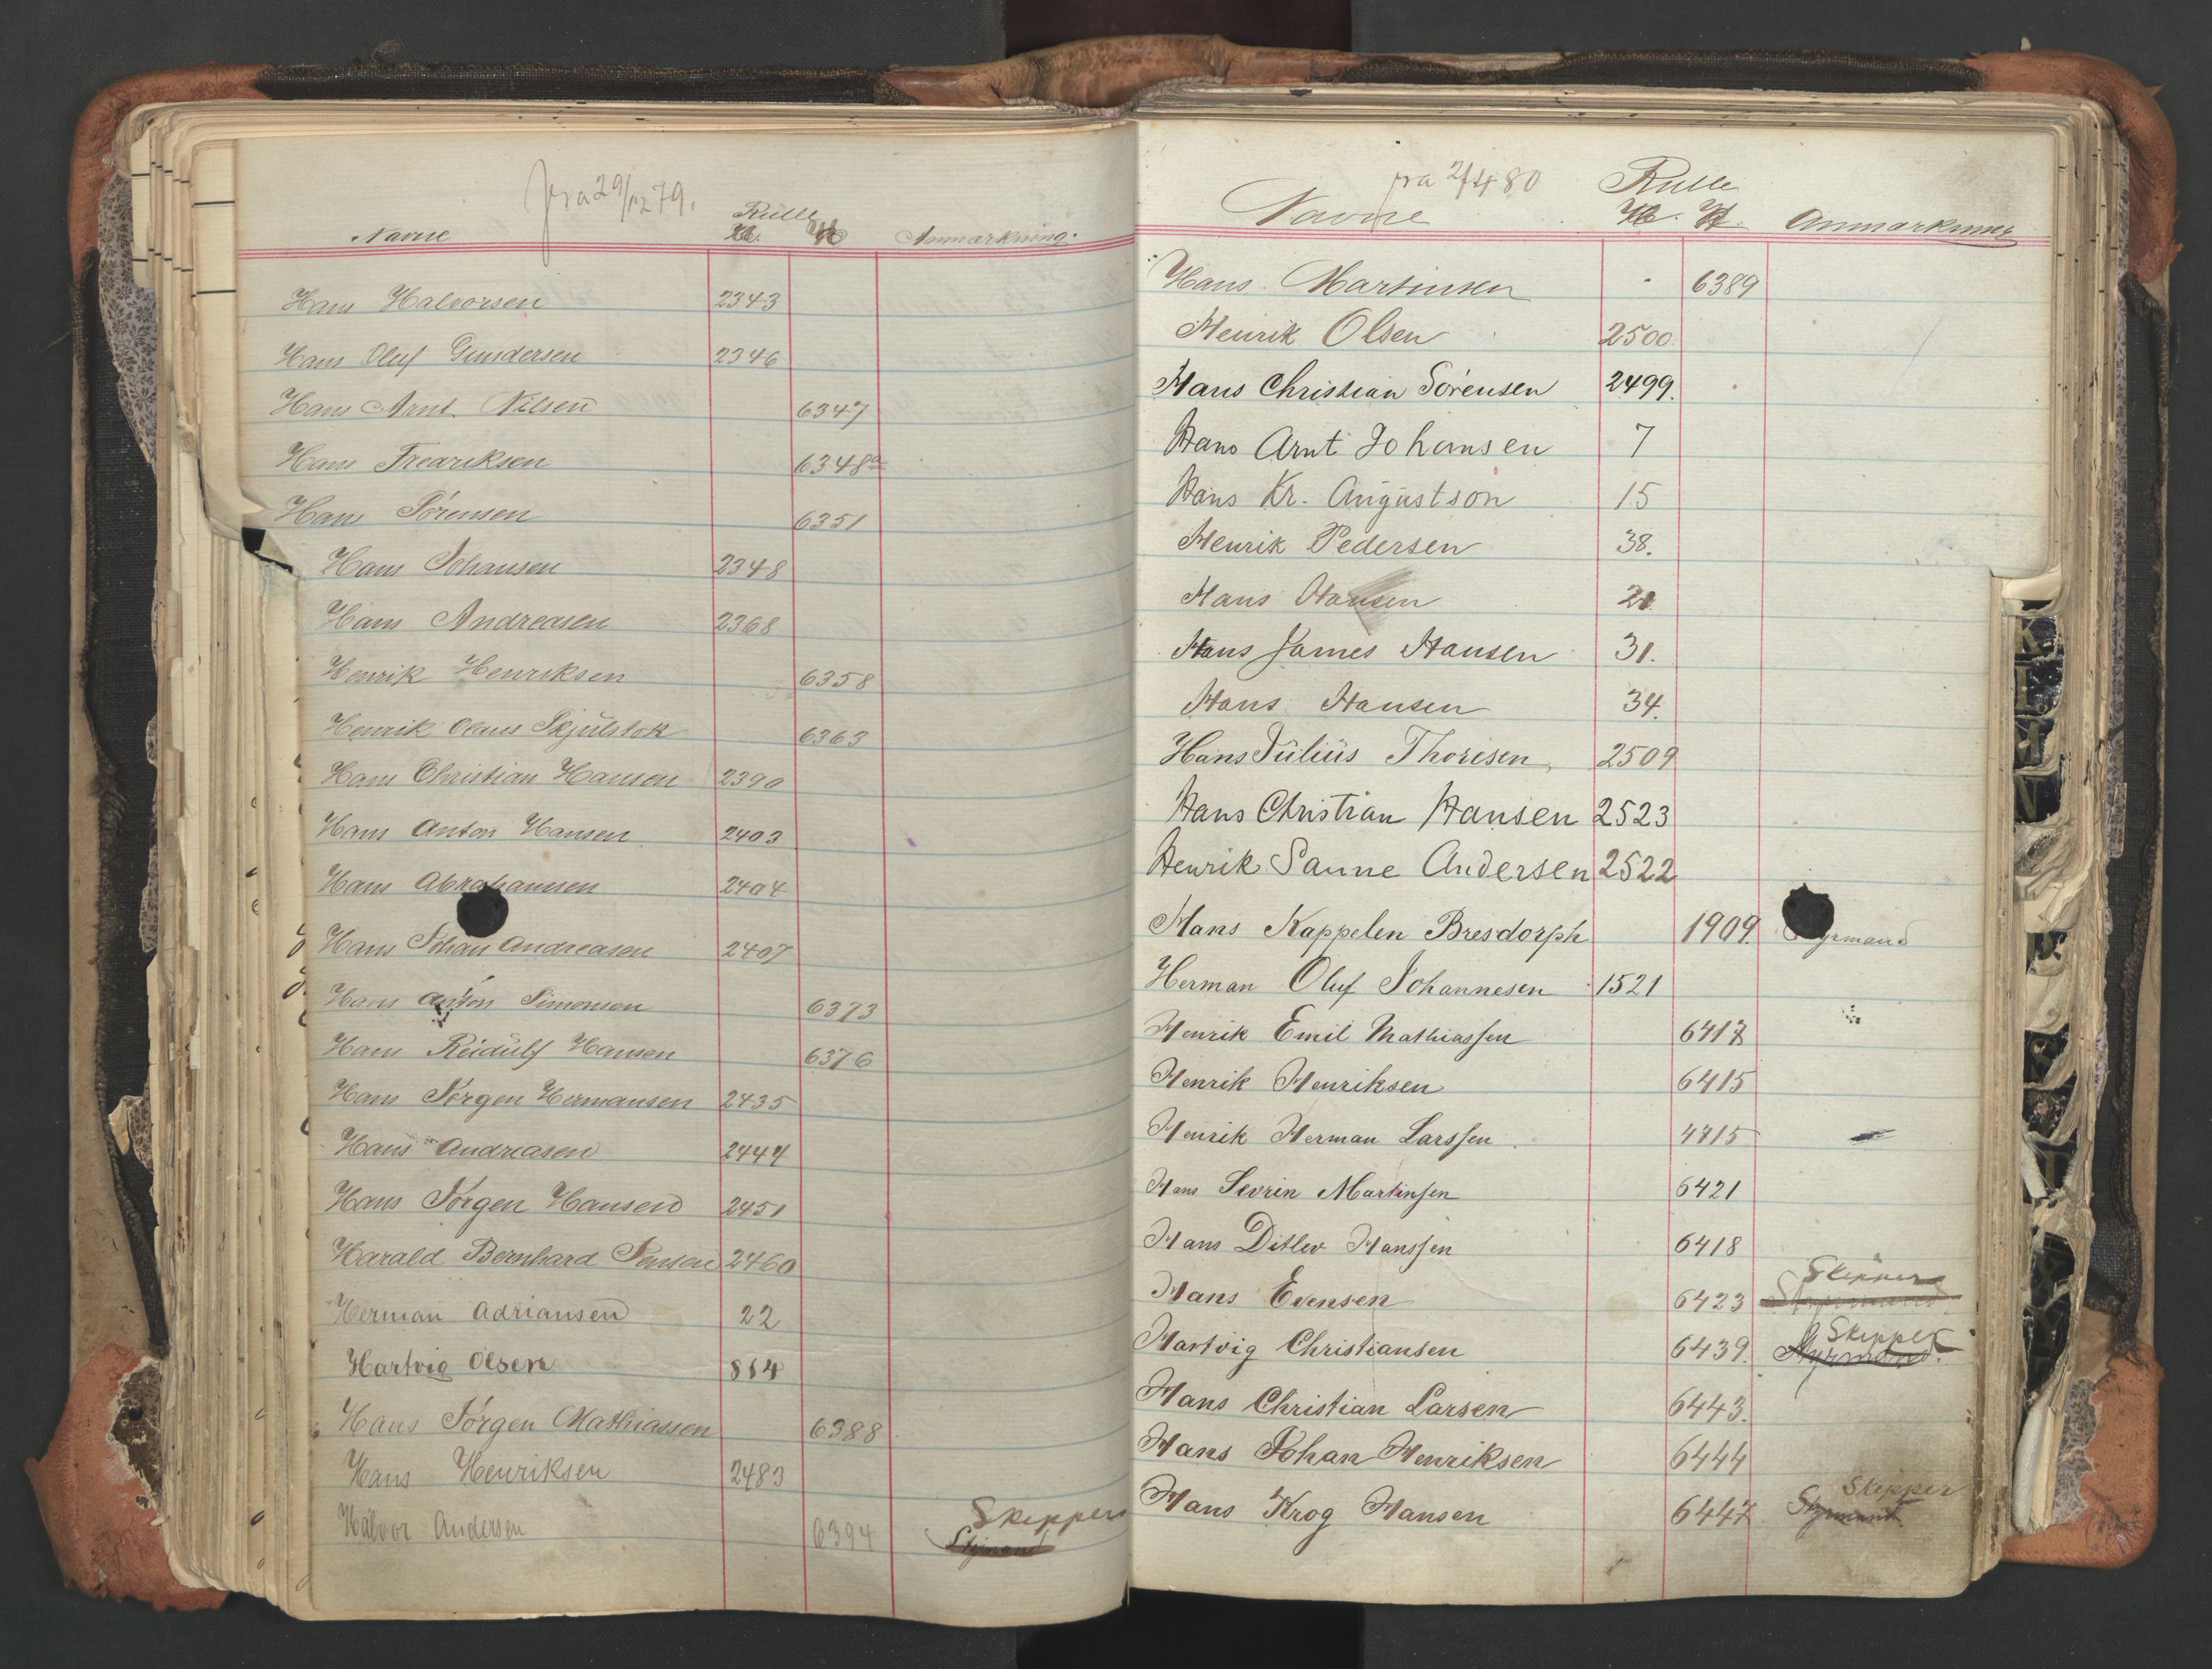 fra 29/12 79.
Rulle
Navne Anmærkning.
Hans Halvorsen 2343
Hans Oluf Gundersen 2346
Hans Arnt Nilsen 6347
Hans Fredriksen 6348a
Hans Sörensen 6351
Hans Johansen 2348
Hans Andreasen 2368
Henrik Henriksen 6358
Henrik Olaus Skjulstok 6363
Hans Christian Hansen 2390
Hans Anton Hansen 2403
Hans Abrahamsen 2404
Hans Johan Andreasen 2407
Hans Anton Simonsen 6373
Hans Reidulf Hansen 6376
Hans Jørgen Hermansen 2435
Hans Andreasen 2444
Hans Jørgen Hansen 2451
Harald Bernhard Jensen 2460
Herman Adriansen 22
Hartvig Olsen 864
Hans Jörgen Mathiassen 6388
Hans Henriksen 2483
Skipper
Halvor Andersen 6394 Styrmand
fra 2/4 80
Rulle
Navne Anmærkning
Hans Martinsen - 6389
Henrik Olsen 2500.
Hans Christian Sörensen 2499.
Hans Arnt Johansen 7
Hans Kr. Augustson 15
Henrik Pedersen 38.
Hans Hansen
Hans James Hansen 31.
Hans Hansen 34.
Hans Julius Thoresen 2509
Hans Christian Hansen 2523
Henrik Sanne Andersen 2522
Hans Kappelen Bresdorph 1909. Styrmand
Herman Oluf Johannesen 1521
Henrik Emil Mathiassen 6417
Henrik Henriksen 6415
Henrik Herman Larssen 4715
Hans Sevrin Martinsen 6421
Hans Ditlev Hanssen 6418
Skipper
Hans Evensen 6423 Styrmand.
Skipper
Hartvig Christiansen 6439. Styrmand.
Hans Christian Larsen 6443.
Hans Johan Henriksen 6444
Skipper
Hans Krog Hansen 6447 Styrmand.